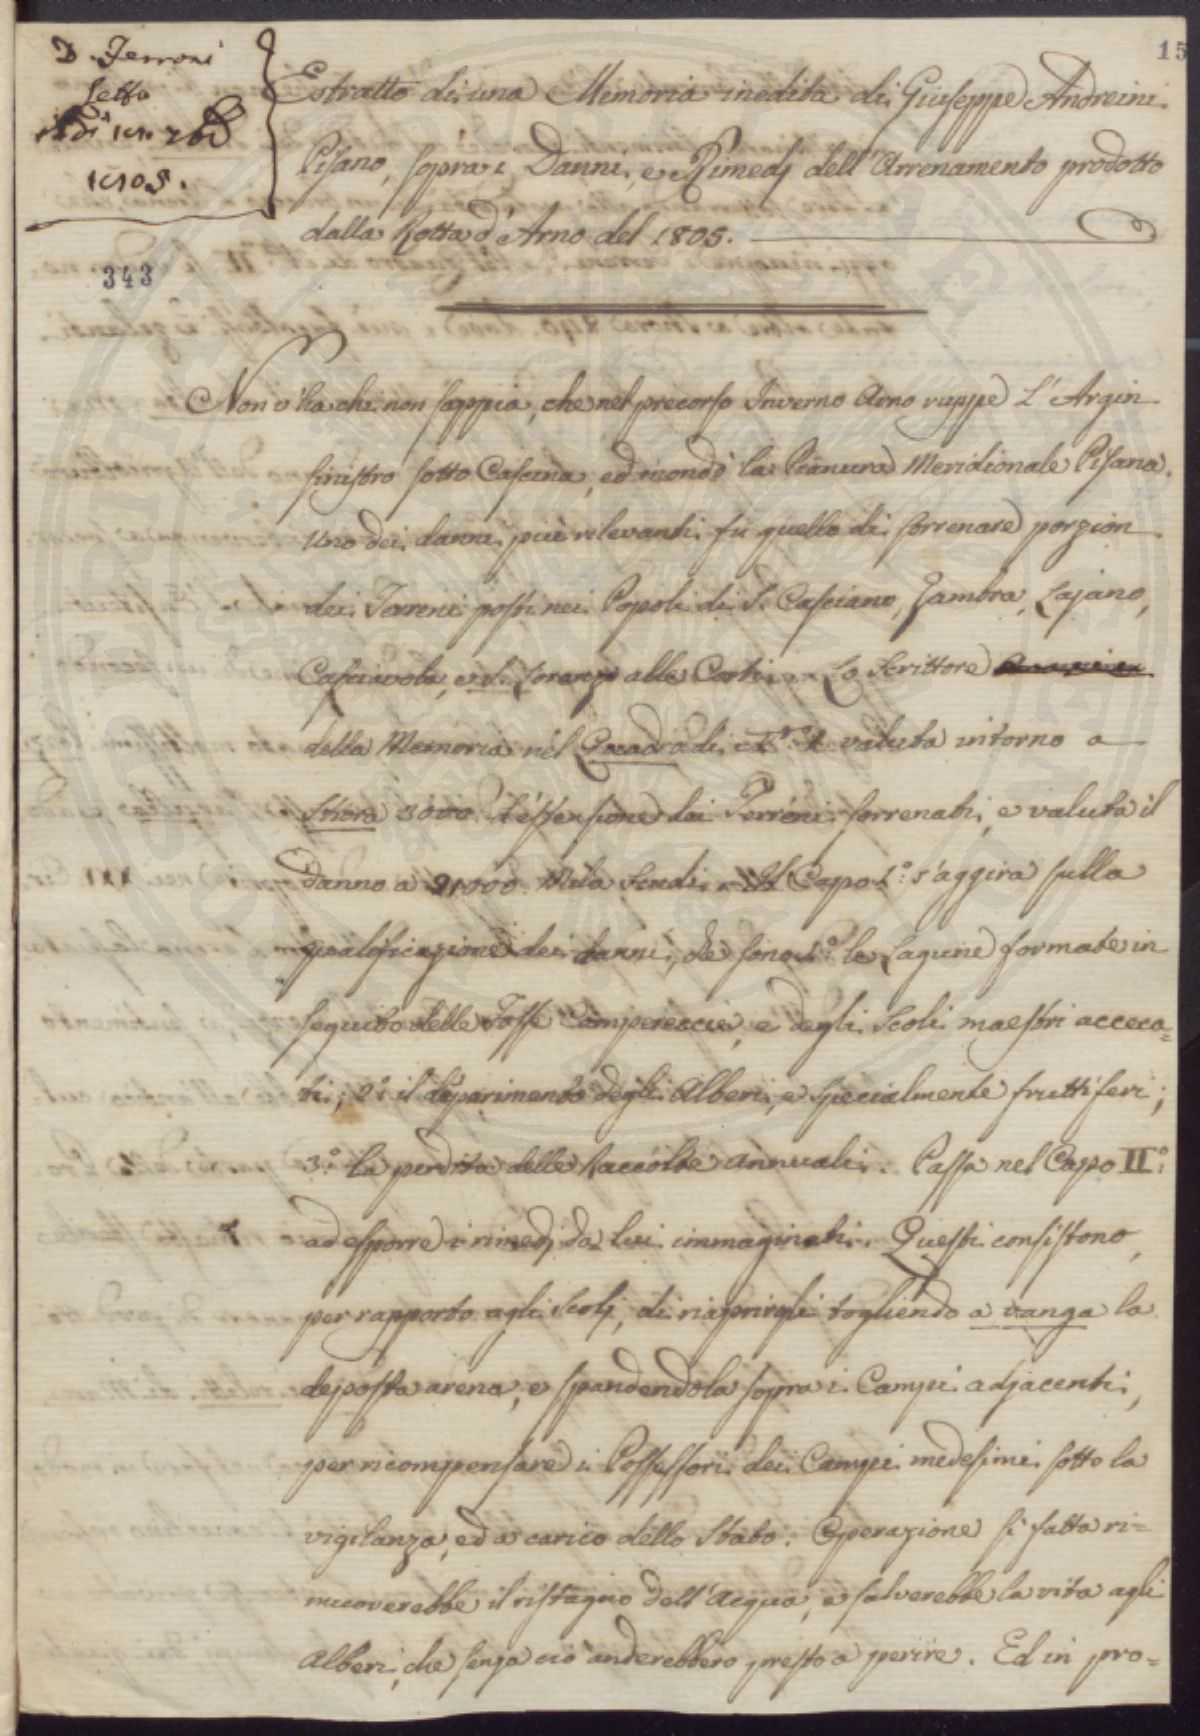 15
D. Ferroni
Letta
1805.
343
Estratto di una Memoria inedita di Giuseppe Andreini
Pisano, sopra i Danni, e Rimedj dell'Arrenamento prodotto
dalla Rotta d'Arno del 1805.
Non v'ha chi non sappia, che nel precorso Inverno Arno ruppe L'Argin
sinistro sotto Cascina, ed inondò la Pianura Meridionale Pisana.
Uno dei danni più rilevanti fu quello di sorrenare porzion
dei Terreni posti nei Popoli di S. Casciano, Zambra, Lajano,
Casciavola, e S. Lorenzo alle Corti. Lo Scrittore
della Memoria nel Quadro di valuta intorno a
Stiora 3000 l'estensione dei Terreni sorrenati, e valuta il
danno a Mila Scudi. Il Capo I.º s'aggira sulla
qualificazione dei danni, che sono 1.º le Lagune formate in
seguito delle Fosse Camperecce, e degli Scoli maestri acceca=
ti; 2.º il deperimento degli Alberi, e specialmente fruttiferi;
3.º la perdita delle Raccolte annuali. Passa nel Capo II.º
ad esporre i rimedj da lui immaginati. Questi consistono,
per rapporto agli Scolj, di riaprirgli togliendo a vanga la
deposta arena, e spandendola sopra i Campi adjacenti,
per ricompensare i Possessori dei Campi medesimi sotto la
vigilanza, ed a carico dello Stato. Operazione sì fatta ri=
muoverebbe il ristagno dell'Acqua, e salverebbe la vita agli
Alberi, che senza ciò anderebbero presto a perire. Ed in pro=